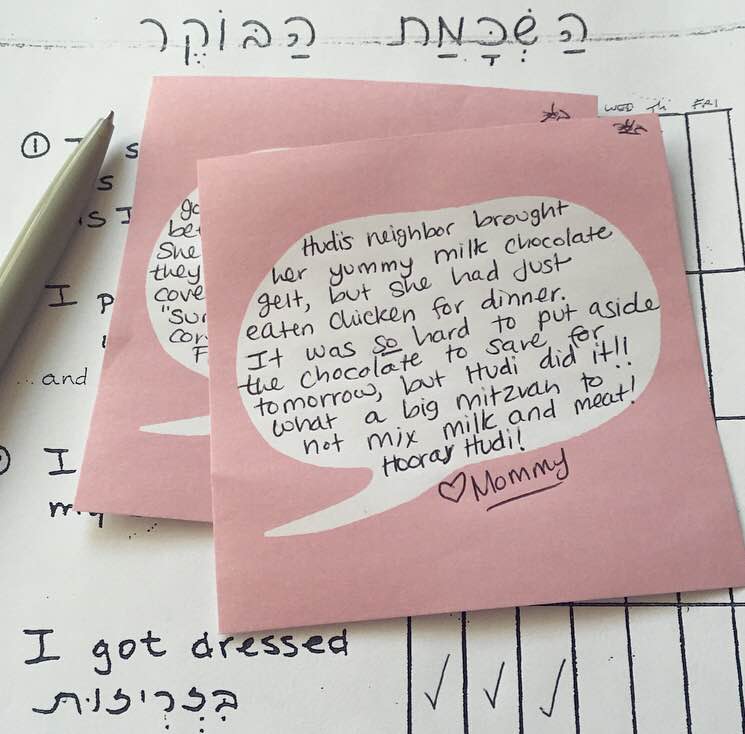 הַשְׁכָּמַת הַבּוֹקֶר
WED Th FRI
① I
s
s
is I
I p
... and
I
my
go
be
She
they
cove
"Sur
Cor
F
Hudi's neighbor brought
her yummy milk chocolate
gelt, but she had just
eaten chicken for dinner.
It was so hard to put aside
the chocolate to save for
tomorrow, but Hudi did it!!
What a big mitzvah to
not mix milk and meat!
Hooray Hudi!
♡ Mommy
I got dressed
בִּזְרִיזוּת
✓ ✓ ✓